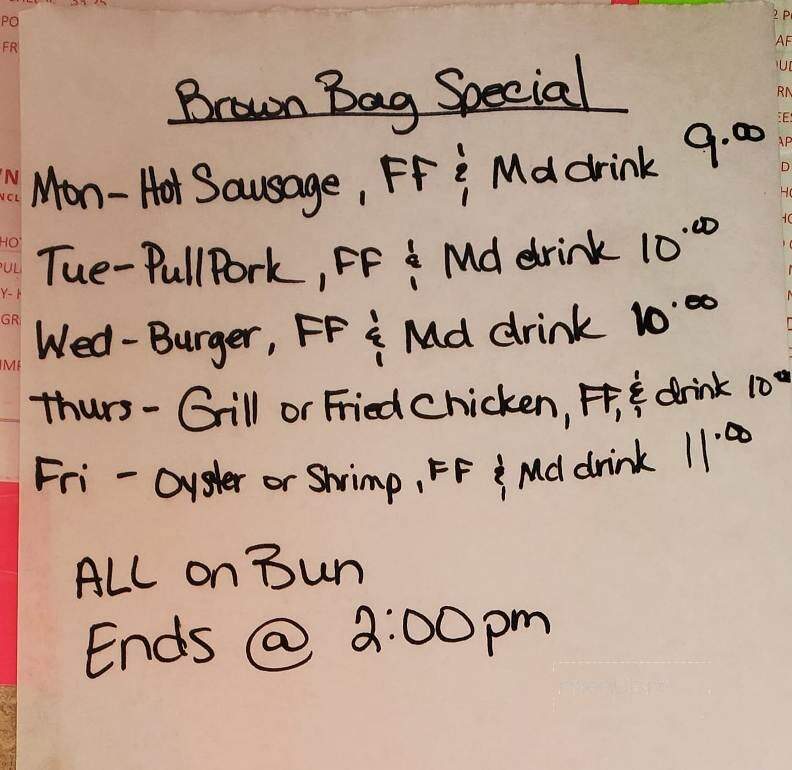 Brown Bag Special
Mon- Hot Sausage, FF & Md drink 9.00
Tue- Pull Pork, FF & Md drink 10.00
Wed- Burger, FF & Md drink 10.00
Thurs- Grill or Fried Chicken, FF, & drink 10.00
Fri - Oyster or Shrimp, FF & Md drink 11.00
ALL on Bun
Ends @ 2:00pm